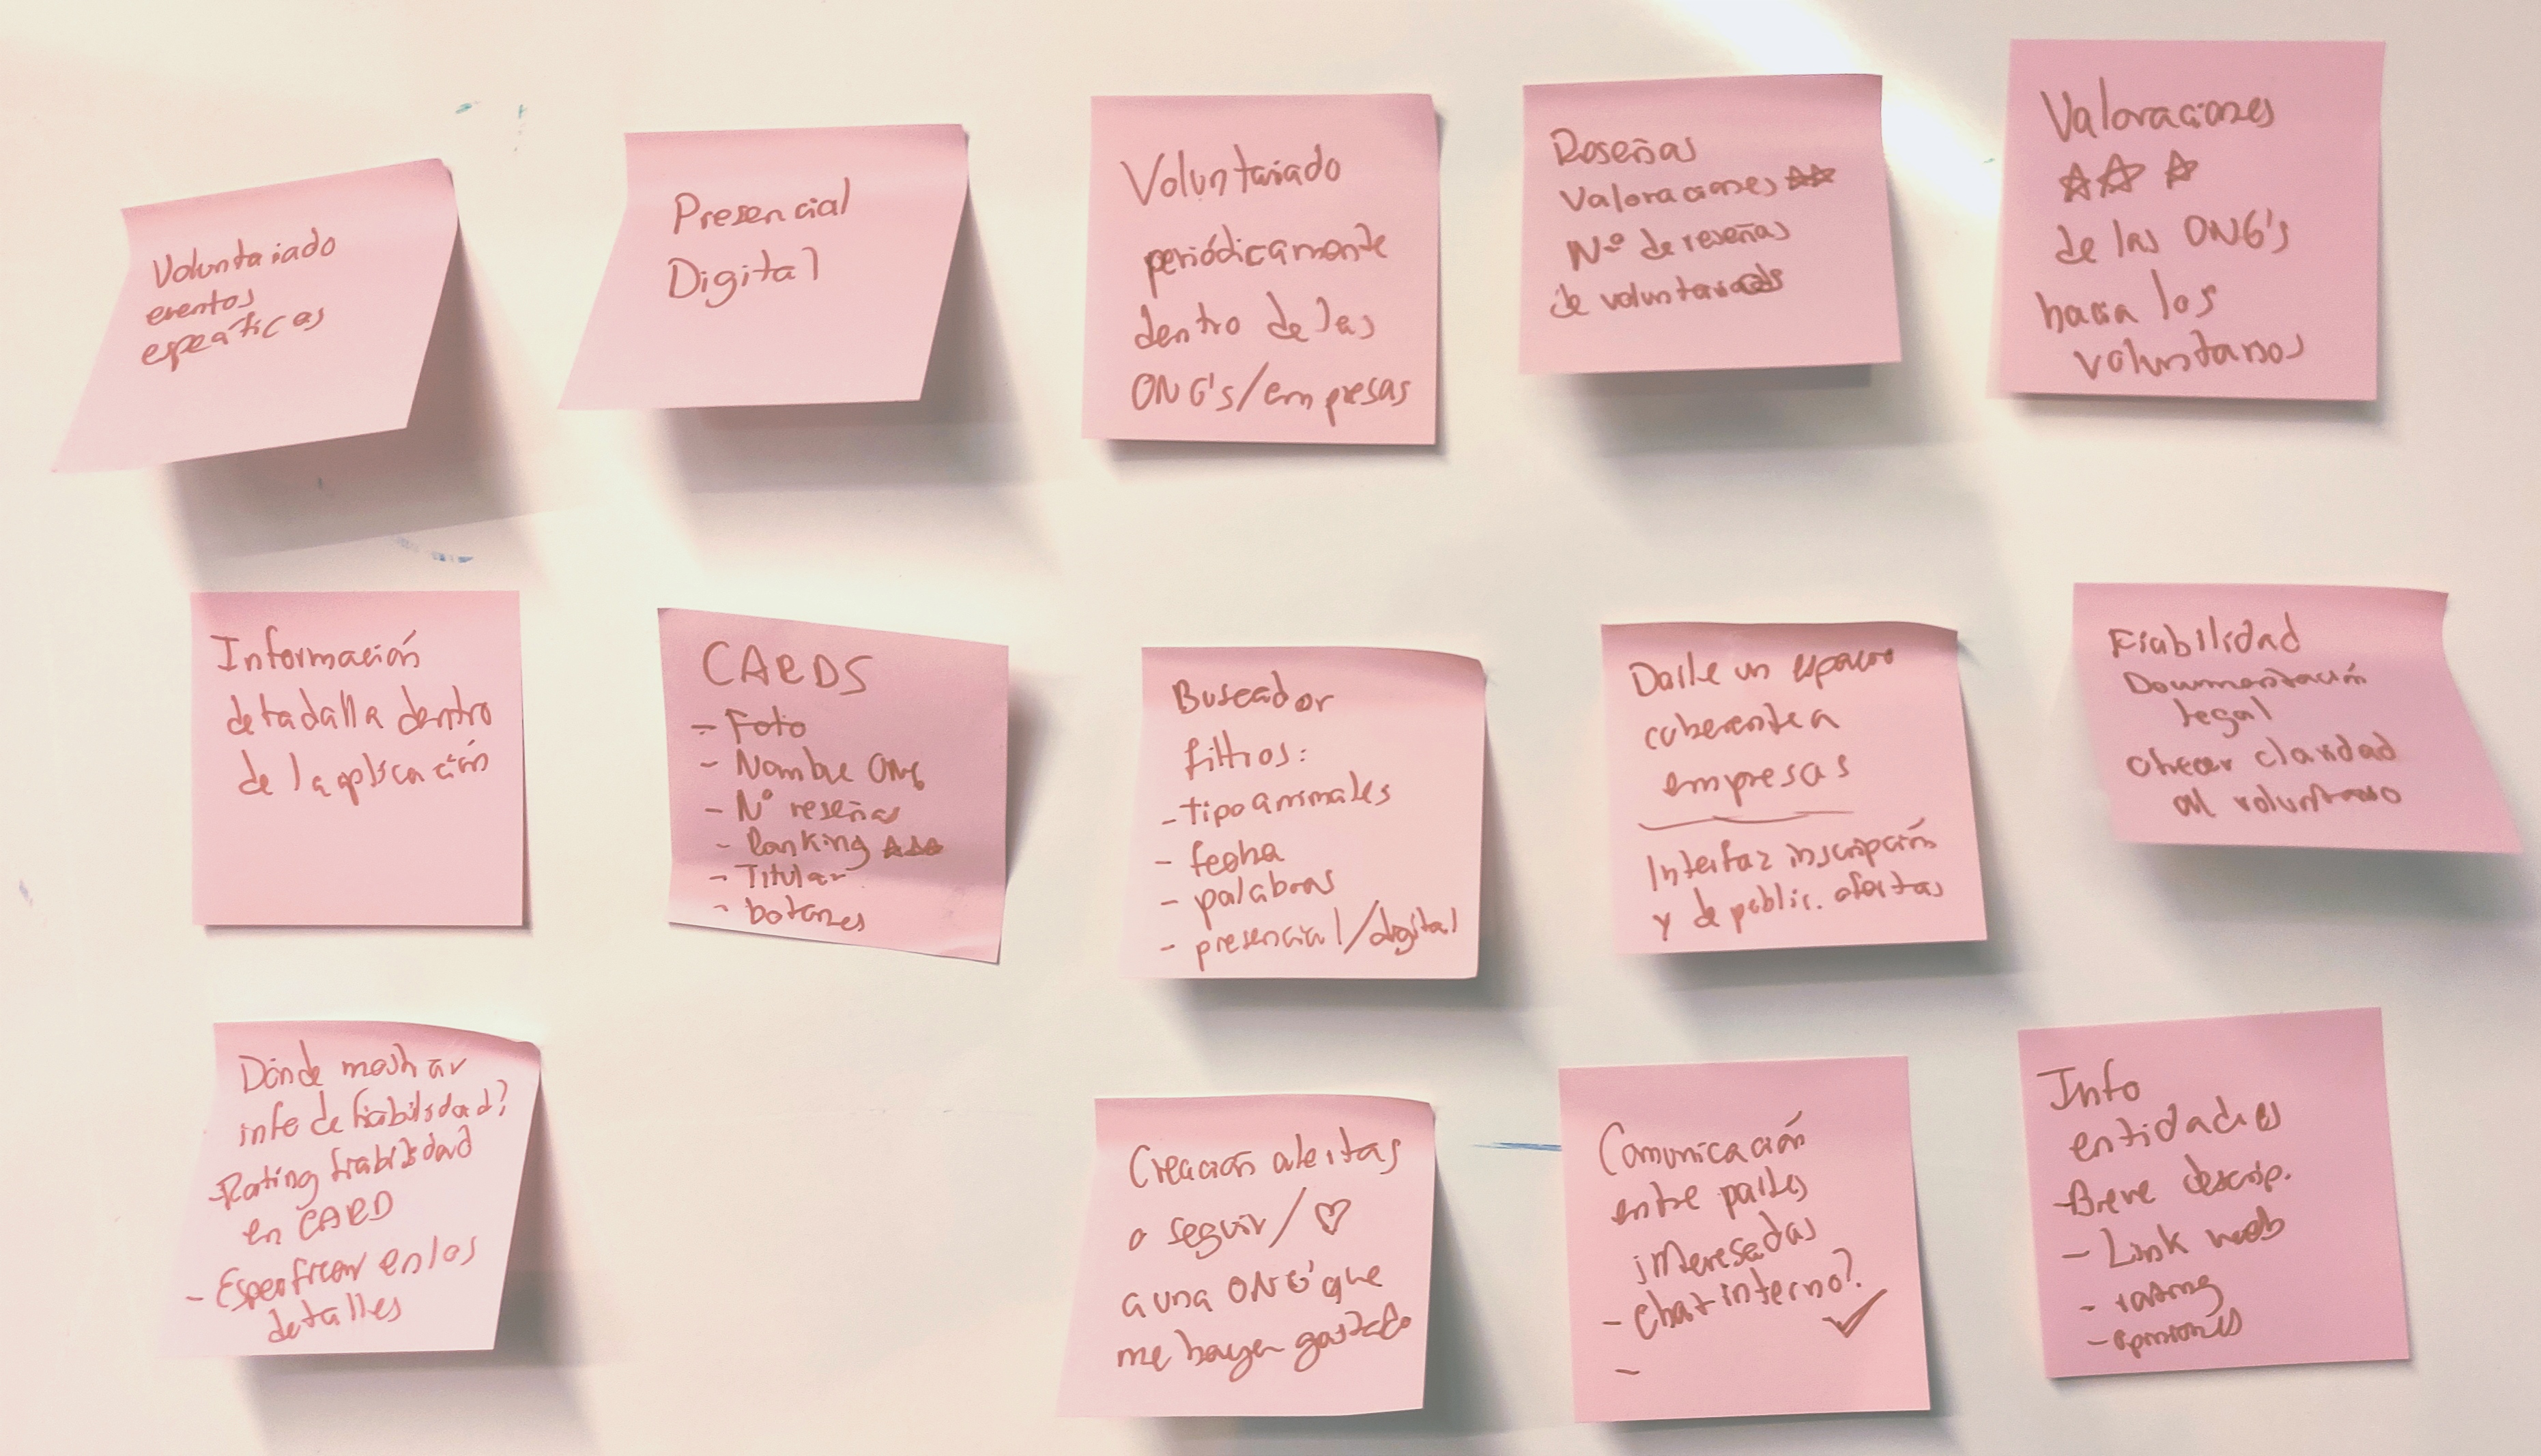 Voluntariado
eventos
específicos
Presencial
Digital
Voluntariado
periódicamente
dentro de las
ONG's/empresas
Reseñas
Valoraciones ☆☆
Nº de reseñas
de voluntariados
Valoraciones
☆☆ ☆
de las ONG's
hacia los
voluntarios
Información
detadalla dentro
de la aplicación
CARDS
- Foto
- Nombre ONG
- Nº reseñas
- Ranking ☆☆☆
- Titular
- botones
Buscador
filtros:
- tipo animales
- fecha
- palabras
- presencial/digital
Darle un espacio
coherente a
empresas
Interfaz inscripción
y de public. ofertas
Fiabilidad
Documentación
legal
ofrecer claridad
al voluntario
Dónde mostrar
info de fiabilidad?
- Rating fiabilidad
en CARD
- Especificar en los
detalles
Creación alertas
o seguir/♡
a una ONG que
me haya gustado
Comunicación
entre partes
interesadas
- Chat interno? ✓
-
Info
entidades
- Breve descrip.
- Link web
- rating
- opiniones